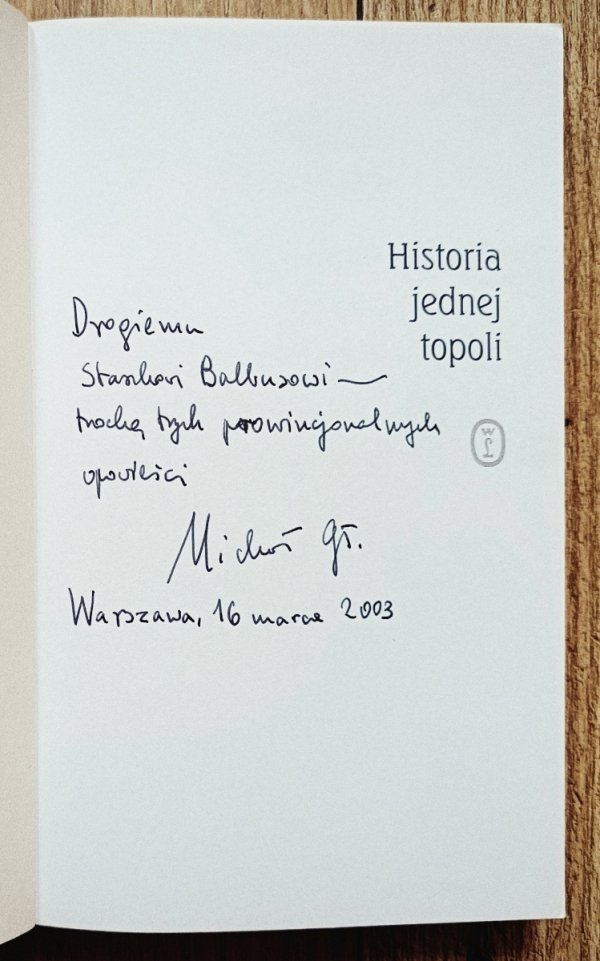 Historia
jednej
topoli
Drogiemu
Staszkowi Balbusowi —
trochę tych prowincjonalnych
opowieści
Michał Gł.
Warszawa, 16 marca 2003
WL